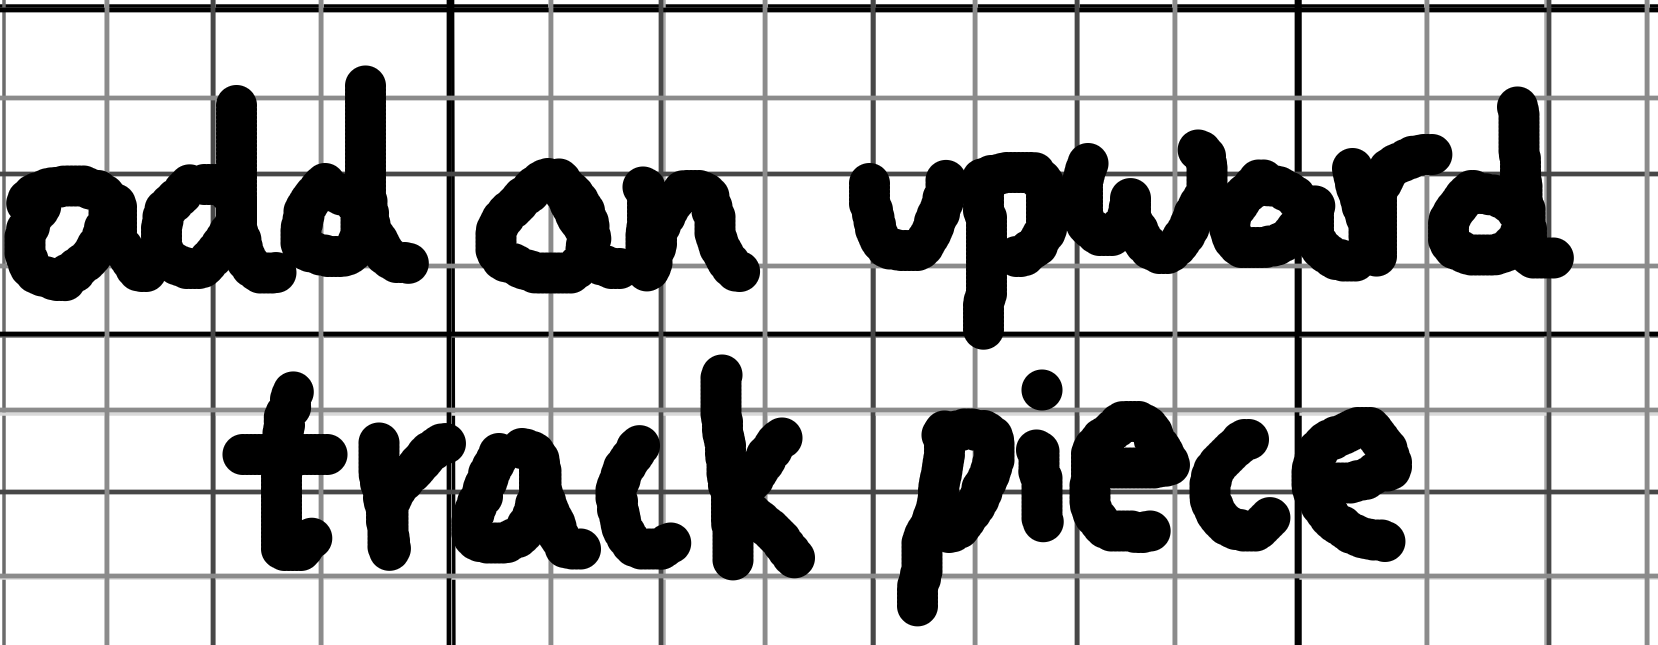 add an upward
track piece